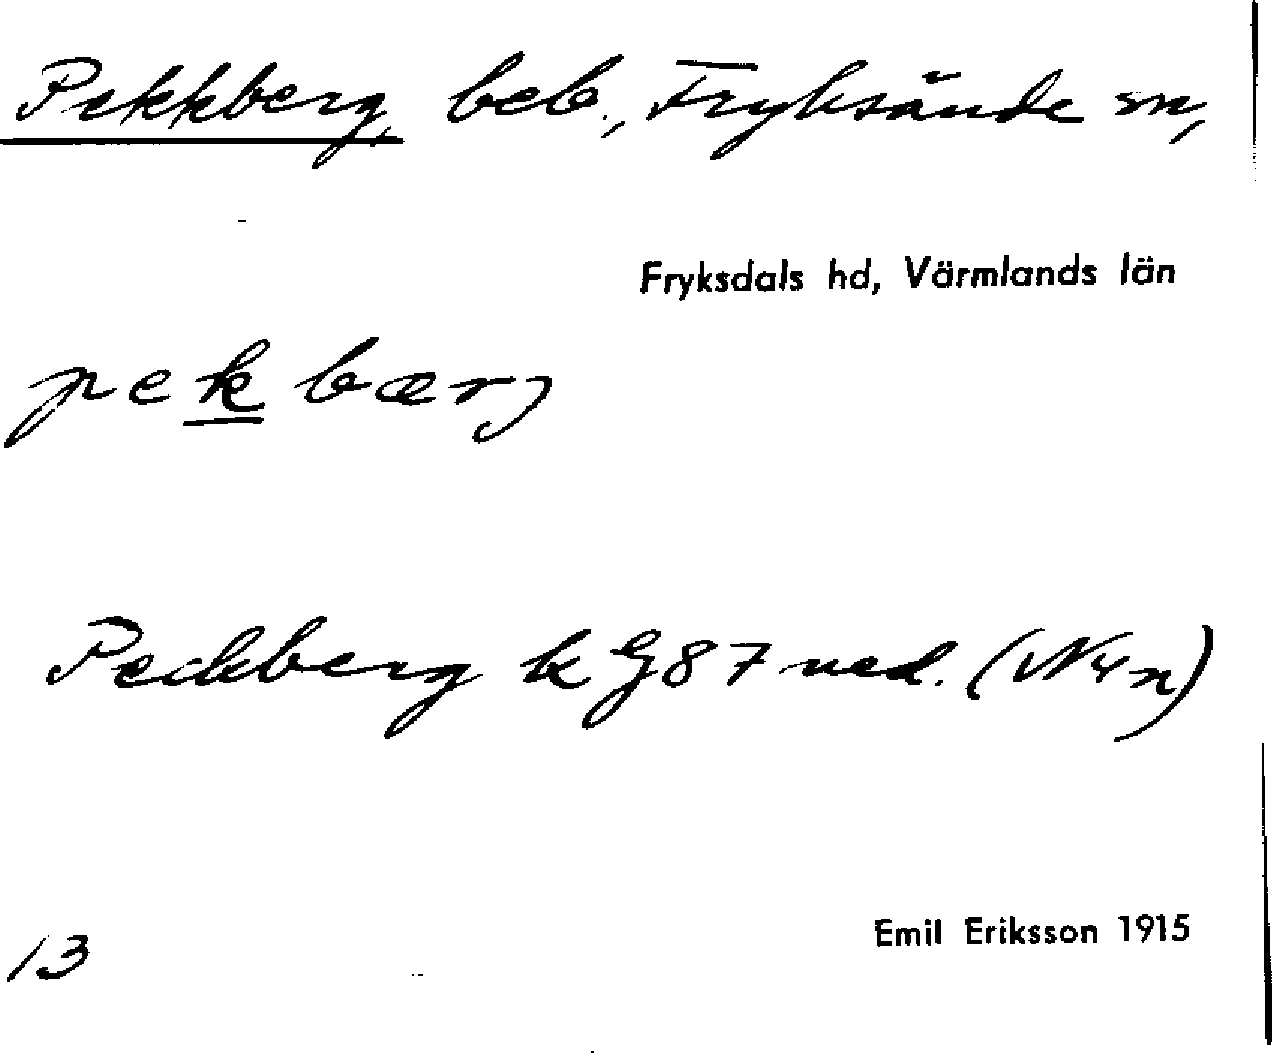 Pekkberg, beb., Fryksände sn,
Fryksdals hd, Värmlands län
pekbærj
Peckberg k G87 ned. (N4n)
Emil Eriksson 1915
13